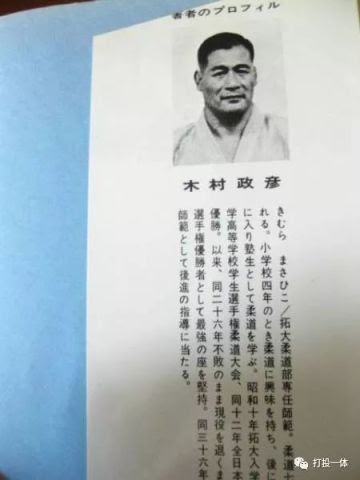 著者のプロフィル
木村政彦
きむら まさひこ／拓大柔道部専任師範。柔道
れる。小学校四年のとき柔道に興味を持ち、後に
に入り塾生として柔道を学ぶ。昭和十年拓大入学
学高等学校学生選手権柔道大会、同十二年全日本
優勝。以来、同二十六年不敗のまま現役を退くま
選手権優勝者として最強の座を堅持。同三十六年
師範として後進の指導に当たる。
打投一体